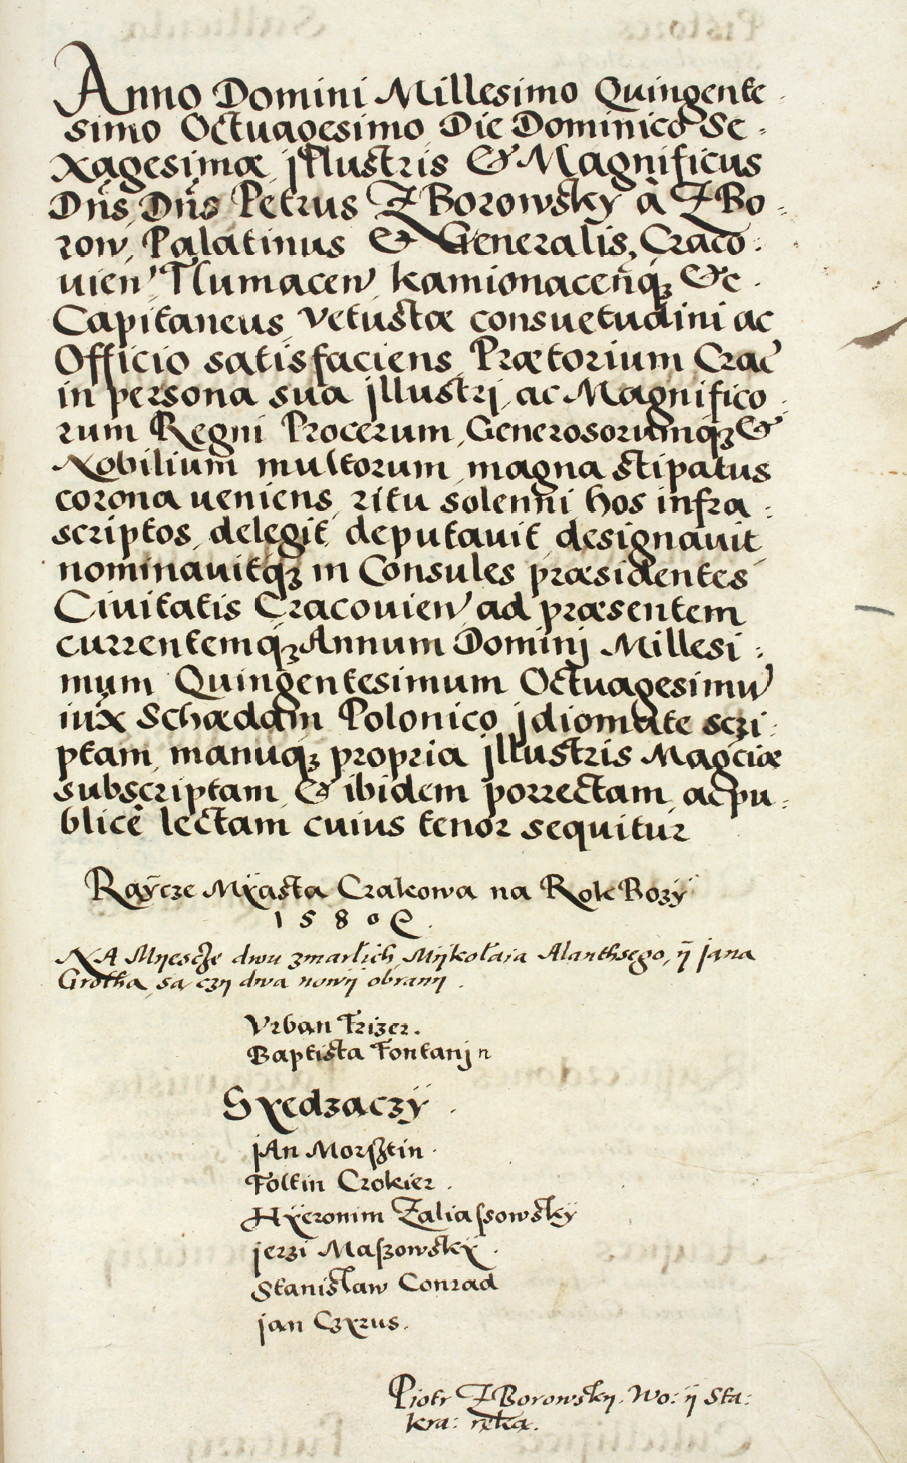 Anno Domini Millesimo Quingente
simo Octuagesimo Die Dominico Se
xagesimæ jllustris & Magnificus
Dns Dns Petrus ZBorowsky à ZBo
row, Palatinus & Generalis, Craco
uien, Tlumacen, kamionacenq; &c
Capitaneus vetustæ consuetudini ac
Officio satisfaciens, Prætorium Crac
in persona sua jllustrj, ac Magnifico
rum Regni Procerum, Generosorumq; &
Nobilium multorum, magna stipatus
corona ueniens, ritu solenni hos infra
scriptos, delegit, deputauit, designauit
nominauitq; in Consules præsidentes
Ciuitatis Cracouien, ad præsentem
currentemq; Annum Dominj Millesi
mum Quingentesimum Octuagesimu
iux Schædam Polonico jdiomate scri
ptam, manuq; propria jllustris Magciæ
subscriptam, & ibidem porrectam, ac pu
blicè lectam cuius tenor sequitur
Raÿcze Mÿasta Crakowa na Rok Bozÿ
1580
NA Mijescze dwu zmarłich, Mijkołaia Alanthsego, ÿ jana
Grotha, są czij dwa nowij obranij.
Vrban Frizer.
Baptista Fontanjn
Sÿedzaczÿ.
jAn Morsztin.
Foltin Crokier.
Hÿeronim Zaliassowskÿ
jerzi Maszowskÿ.
Stanisław Conrad
jan Czÿrus.
Piotr ZBorowskij. Wo: ij Sta:
kra: ręką.